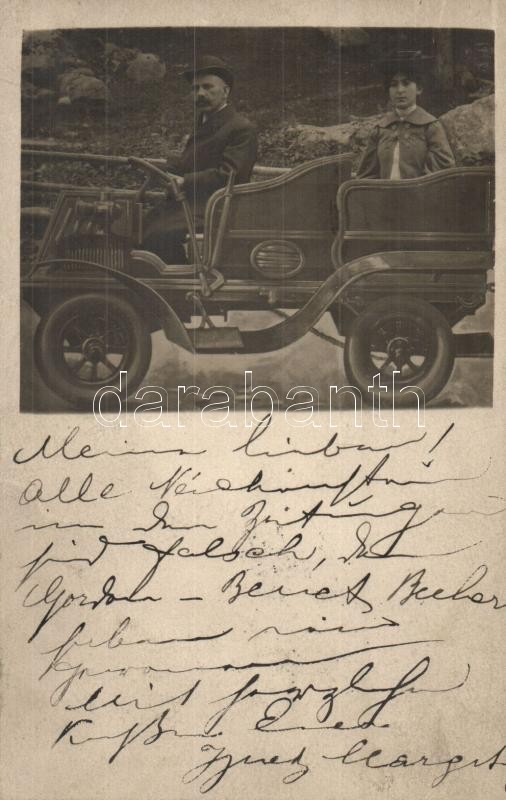 darabanth
Meine lieben!
Alle Nachrichten
in den Zeitungen
sind falsch, den
Gordon - Benet Becher
haben wir
gewonnen
Mit herzlichen
Küßen Euer
Ignatz Margit